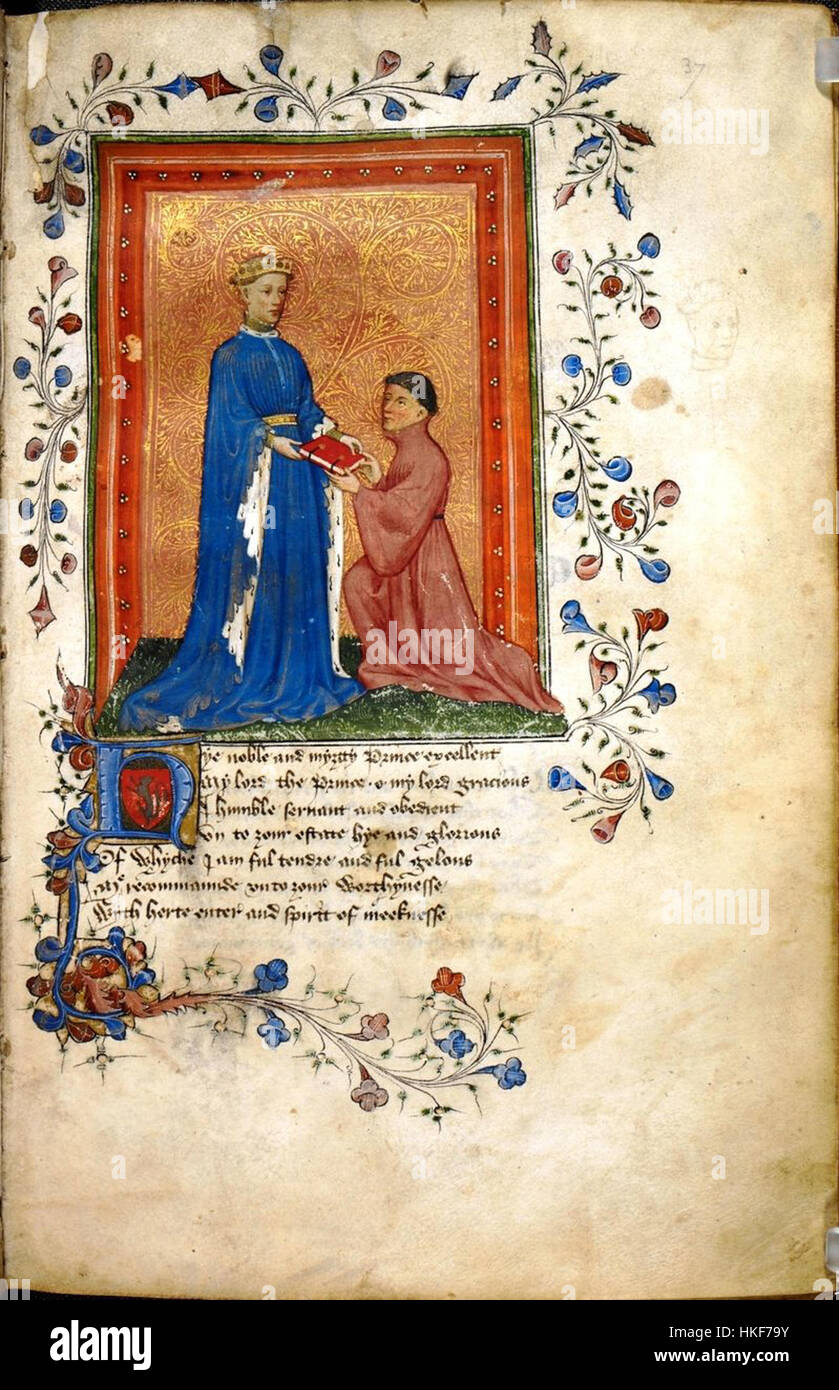 37
Hye noble and myghty Prince excellent
My lord the Prince o my lord gracious
I humble servant and obedient
Un to your estate hye and glorious
Of Whyche I am ful tendre and ful gelous
Me recommaunde unto your Worthynesse
Wyth herte enter and spirit of meeknesse
a
alamy
alamy
Image ID: HKF79Y
www.alamy.com